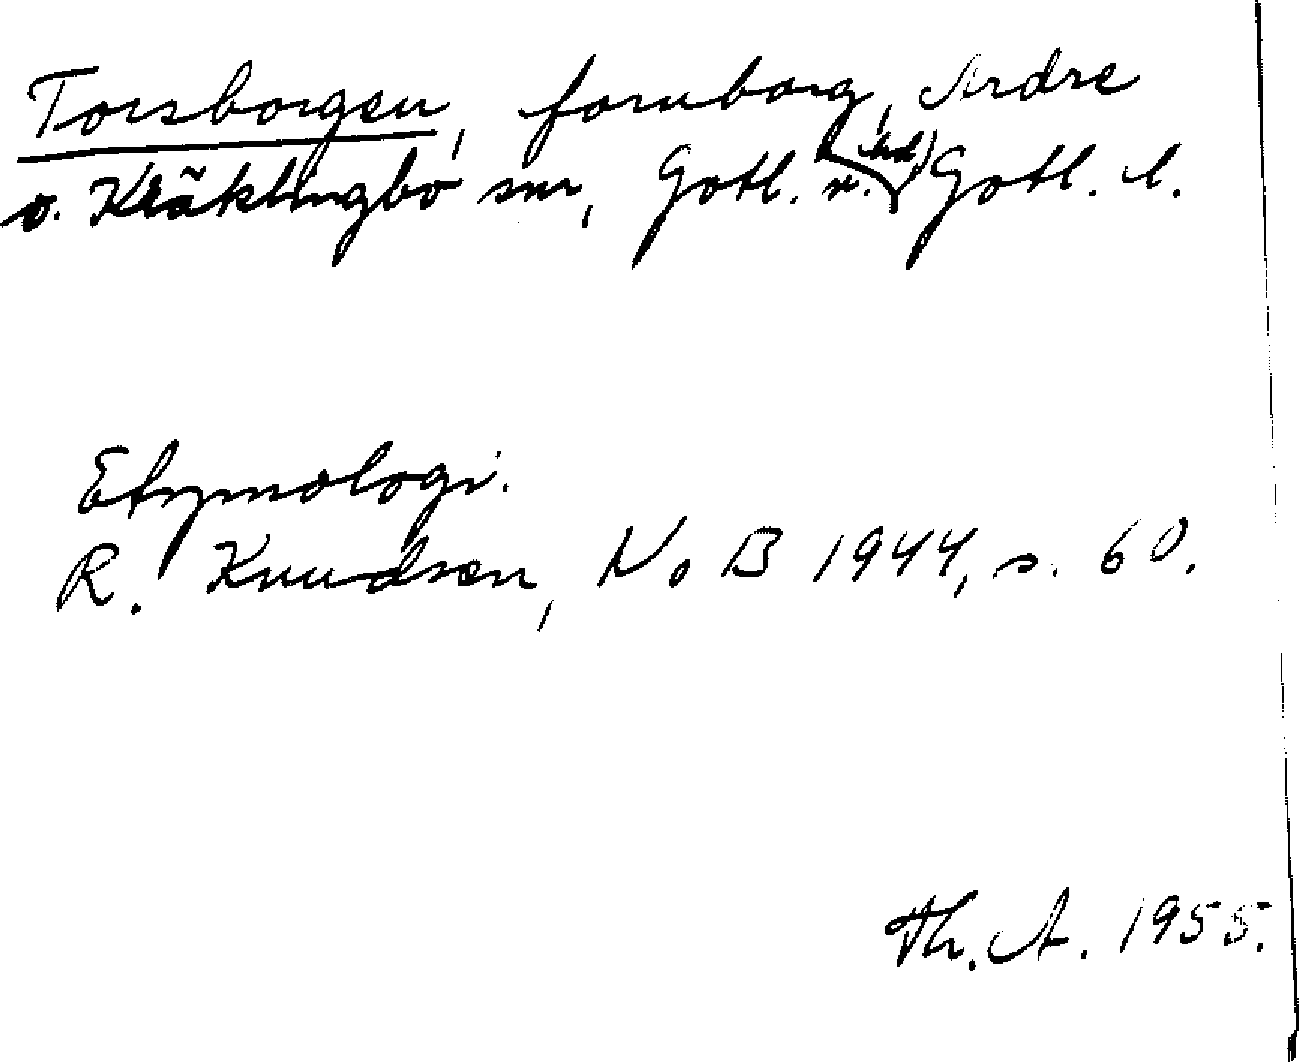 Torsborgen, fornborg, Ardre
o. Kräklingbo snr, Gotl. n. hd, Gotl. l.
Etymologi.
R. Knudsen, NoB 1944, s. 60.
Th. A. 1955.